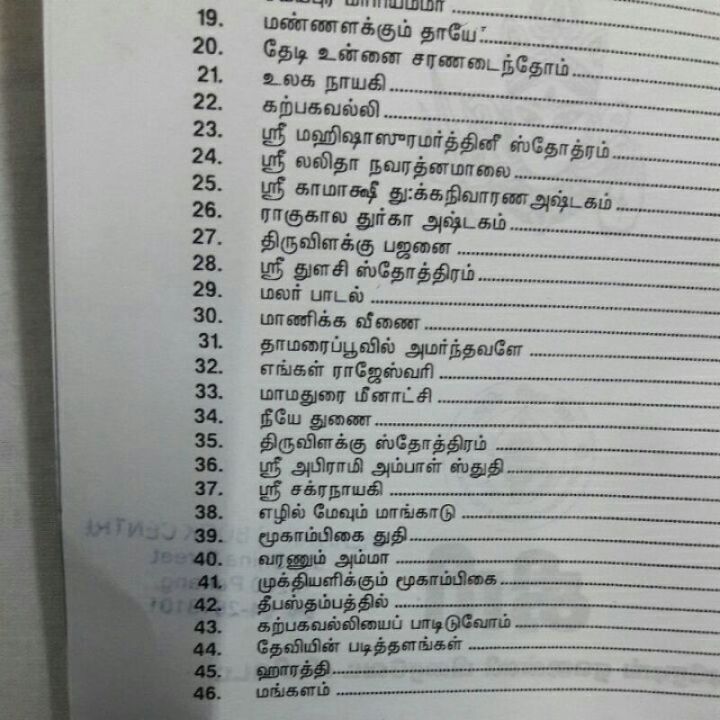 மாரியம்மா
19. மண்ணளக்கும் தாயே
20. தேடி உன்னை சரணடைந்தோம்
21. உலக நாயகி
22. கற்பகவல்லி
23. ஸ்ரீ மஹிஷாஸுரமர்த்தினீ ஸ்தோத்ரம்
24. ஸ்ரீ லலிதா நவரத்னமாலை
25. ஸ்ரீ காமாக்ஷீ து:க்கநிவாரண அஷ்டகம்
26. ராகுகால துர்கா அஷ்டகம்
27. திருவிளக்கு பஜனை
28. ஸ்ரீ துளசி ஸ்தோத்திரம்
29. மலர் பாடல்
30. மாணிக்க வீணை
31. தாமரைப்பூவில் அமர்ந்தவளே
32. எங்கள் ராஜேஸ்வரி
33. மாமதுரை மீனாட்சி
34. நீயே துணை
35. திருவிளக்கு ஸ்தோத்திரம்
36. ஸ்ரீ அபிராமி அம்பாள் ஸ்துதி
37. ஸ்ரீ சக்ரநாயகி
38. எழில் மேவும் மாங்காடு
39. மூகாம்பிகை துதி
40. வரணும் அம்மா
41. முக்தியளிக்கும் மூகாம்பிகை
42. தீபஸ்தம்பத்தில்
43. கற்பகவல்லியைப் பாடிடுவோம்
44. தேவியின் படித்தளங்கள்
45. ஹாரத்தி
46. மங்களம்